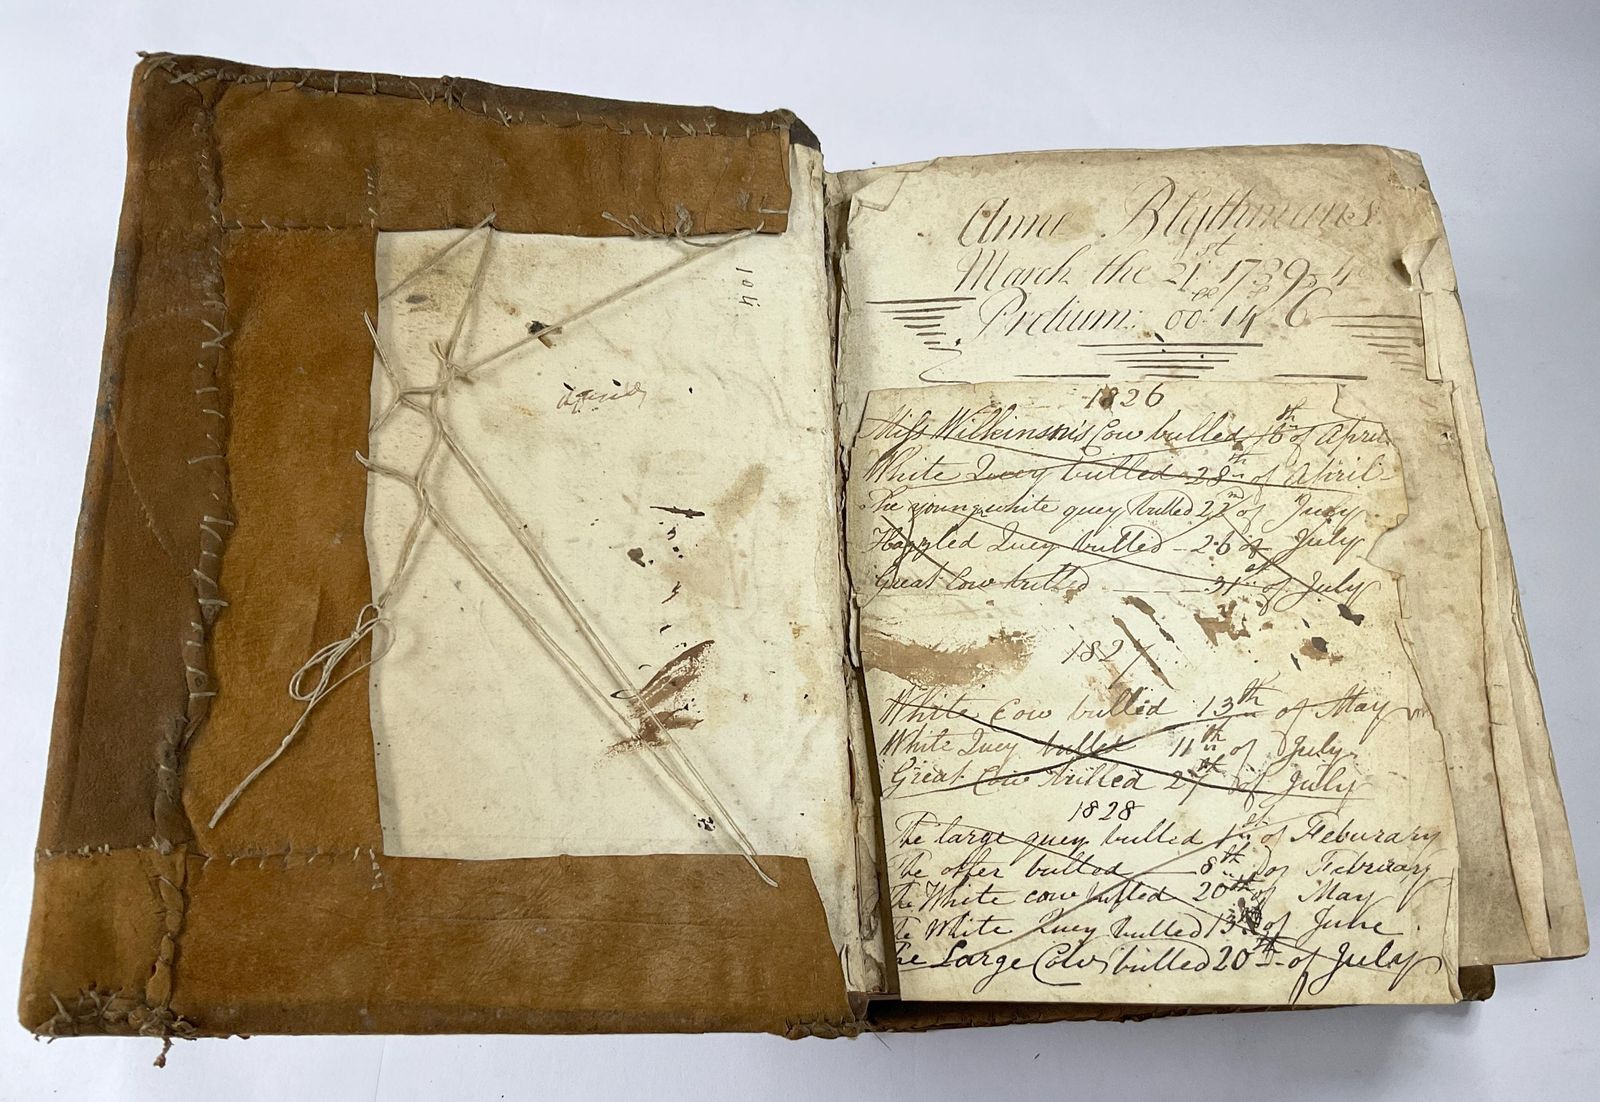 104
Anne Blythman's
March the 21st 1739/4
Pretium: 00 14 6
1826
Miss Wilkinsin's Cow bulled 16th of April
White Quey bulled 28th of April
The young white quey bulled 22nd of July
Haggled Quey bulled - 26 of July
Great Cow bulled 31st of July
1827
White Cow bulled 13th of May
White Quey bulled 11th of July
Great Cow bulled 27th of July
1828
The large quey bulled 1st of Feburary
The other bulled 8th of February
The White cow bulled 20th of May
The White Quey bulled 13th of June
The Large Cow bulled 20th of July